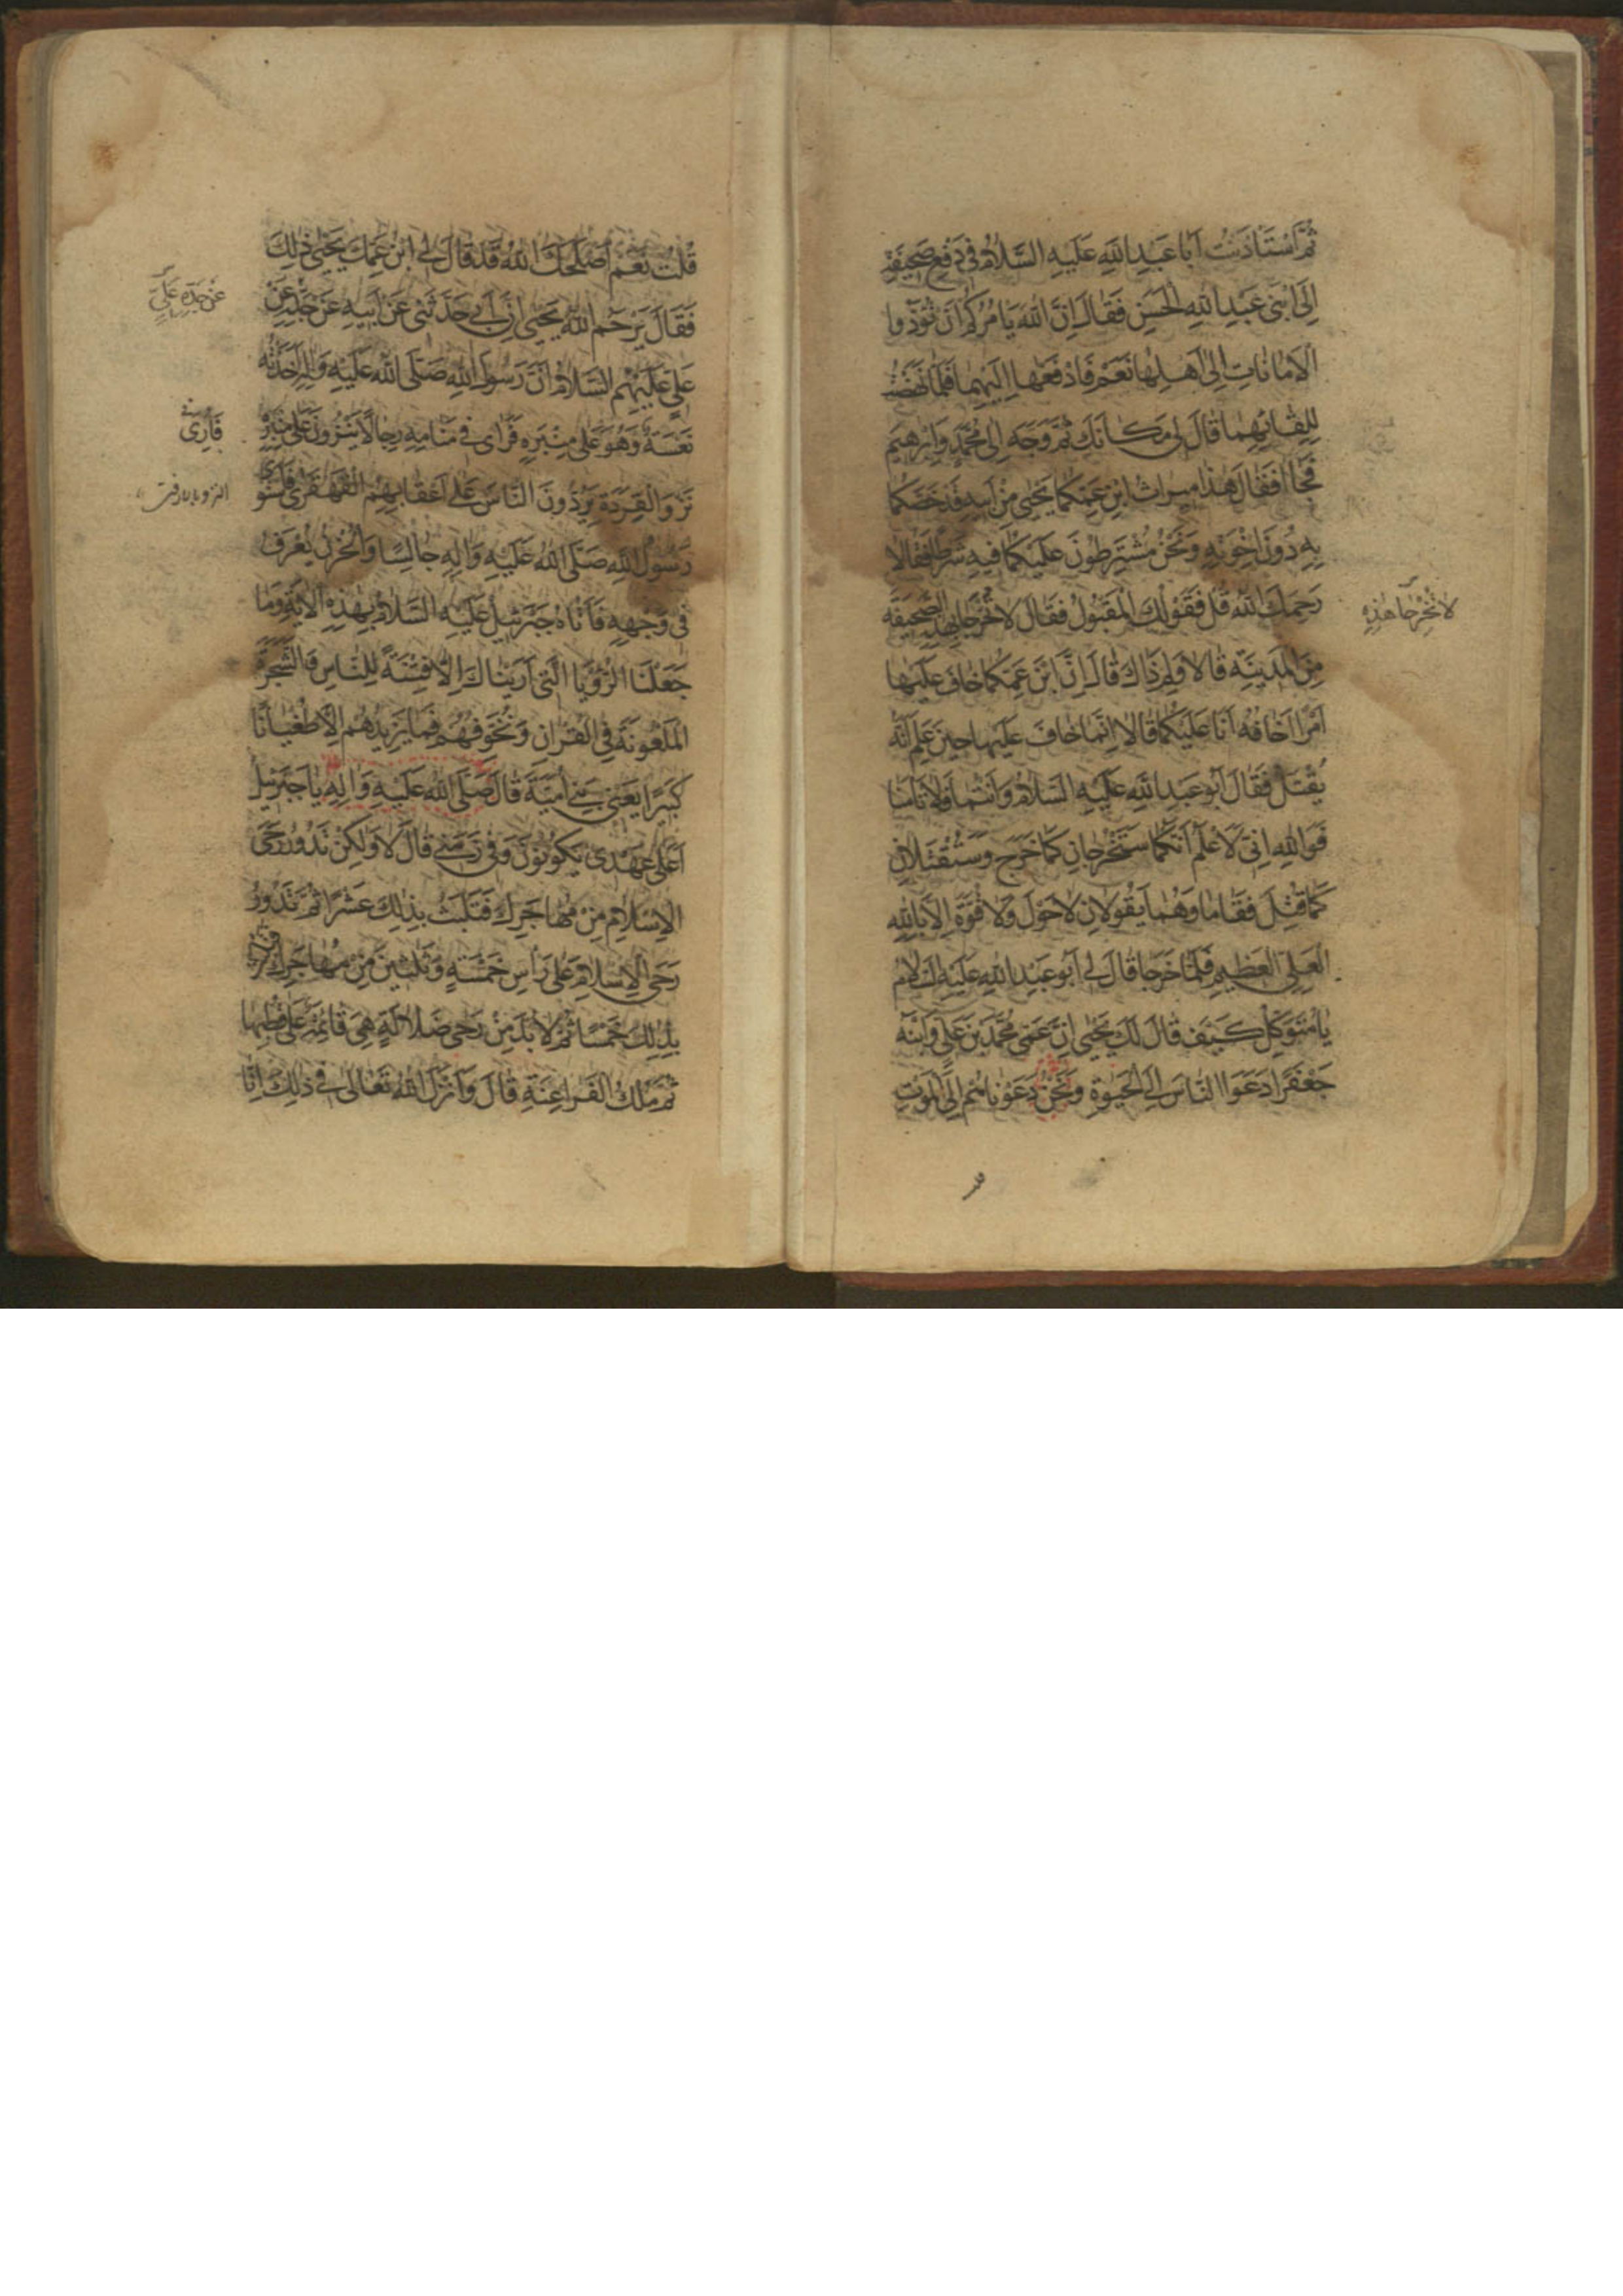 ثُمَّ اسْتَأذَنْتُ اَبا عَبْدِ اللهِ عَلَيْهِ السَّلامُ فى دَفْعِ صَحِيفَةِ
اِلَى ابْنَى عَبْدِ اللهِ الْحَسَنِ فَقالَ اِنَّ اللهَ يَامُرُكُمْ اَنْ تُؤَدُّوا
الْاَماناتِ اِلى اَهْلِها نَعَمْ فَادْفَعْها اِلَيْهِما فَلَمّا نَهَضْتُ
لِلِقائِهِما قالَ لى مَكانَكَ ثُمَّ وَجَّهَ اِلى مُحَمَّدٍ وَاِبْرهيمَ
فَجاا فَقالَ هذا ميراثُ ابْنِ عَمِّكُما يَحْيى مِنْ اَبيهِ قَدْ خَصَّكُما
بِهِ دُونَ اِخْوَتِهِ وَنَحْنُ مُشْتَرِطُونَ عَلَيْكُما فيهِ شَرْطًا فَقالا
رَحِمَكَ اللهُ قُلْ فَقَوْلُكَ الْمَقْبُولُ فَقالَ لا تَخْرُجا بِهذِهِ الصَّحيفَةِ
لا تُخْرِجا هذِهِ
مِنَ الْمَدينَةِ قالا وَلِمَ ذاكَ قالَ اِنَّ ابْنَ عَمِّكُما خافَ عَلَيْها
اَمْرًا اَخافُهُ اَنَا عَلَيْكُما قالا اِنَّما خافَ عَلَيْها حينَ عَلِمَ اَنَّهُ
يُقْتَلُ فَقالَ اَبُو عَبْدِ اللهِ عَلَيْهِ السَّلامُ وَاَنْتُما فَلا تَامَنا
فَوَاللهِ اِنّى لَاَعْلَمُ اَنَّكُما سَتَخْرُجانِ كَما خَرَجَ وَسَتُقْتَلانِ
كَما قُتِلَ فَقاما وَهُما يَقُولانِ لا حَوْلَ وَلا قُوَّةَ اِلّا بِاللهِ
الْعَلِىِّ الْعَظيمِ فَلَمّا خَرَجا قالَ لى اَبُو عَبْدِ اللهِ عَلَيْهِ السَّلامُ
يا مُتَوَكِّلُ كَيْفَ قالَ لَكَ يَحْيى اِنَّ عَمّى مُحَمَّدَ بْنَ عَلِىٍّ وَابْنَهُ
جَعْفَرًا دَعَوَا النّاسَ اِلَى الْحَيوةِ وَنَحْنُ دَعَوْناهُمْ اِلَى الْمَوْتِ
قلت
قُلْتُ نَعَمْ اَصْلَحَكَ اللهُ قَدْ قالَ لى ابْنُ عَمِّكَ يَحْيى ذلِكَ
فَقالَ يَرْحَمُ اللهُ يَحْيى اِنَّ اَبى حَدَّثَنى عَنْ اَبيهِ عَنْ جَدِّهِ عَنْ
عَنْ جَدِّهِ عَلِىٍّ
عَلِىٍّ عَلَيْهِمُ السَّلامُ اَنَّ رَسُولَ اللهِ صَلَّى اللهُ عَلَيْهِ وَالِهِ اَخَذَتْهُ
نَعْسَةٌ وَهُوَ عَلى مِنْبَرِهِ فَرَاى فى مَنامِهِ رِجالًا يَنْزُونَ عَلى مِنْبَرِهِ
فَاُرِىَ
نَزْوَ الْقِرَدَةِ يَرُدُّونَ النّاسَ عَلى اَعْقابِهِمُ الْقَهْقَرى فَاسْتَوى
رَسُولُ اللهِ صَلَّى اللهُ عَلَيْهِ وَالِهِ جالِسًا وَالْحُزْنُ يُعْرَفُ
فى وَجْهِهِ فَاَتاهُ جَبْرَئيلُ عَلَيْهِ السَّلامُ بِهذِهِ الْايَةِ وَما
جَعَلْنَا الرُّؤْيَا الَّتى اَرَيْناكَ اِلّا فِتْنَةً لِلنّاسِ وَالشَّجَرَةَ
الْمَلْعُونَةَ فِى الْقُرْانِ وَنُخَوِّفُهُمْ فَما يَزيدُهُمْ اِلّا طُغْيانًا
كَبيرًا يَعْنى بَنى اُمَيَّةَ قالَ صَلَّى اللهُ عَلَيْهِ وَالِهِ يا جَبْرَئيلُ
اَعَلى عَهْدى يَكُونُونَ وَفى زَمَنى قالَ لا وَلكِنْ تَدُورُ رَحَى
الْاِسْلامِ مِنْ مُهاجَرِكَ فَتَلْبَثُ بِذلِكَ عَشْرًا ثُمَّ تَدُورُ
رَحَى الْاِسْلامِ عَلى رَاْسِ خَمْسَةٍ وَثَلثينَ مِنْ مُهاجَرِكَ فَتَلْبَثُ
بِذلِكَ خَمْسًا ثُمَّ لا بُدَّ مِنْ رَحى ضَلالَةٍ هِىَ قائِمَةٌ عَلى قُطْبِها
ثُمَّ مُلْكُ الْفَراعِنَةِ قالَ وَاَنْزَلَ اللهُ تَعالى فى ذلِكَ اِنّا